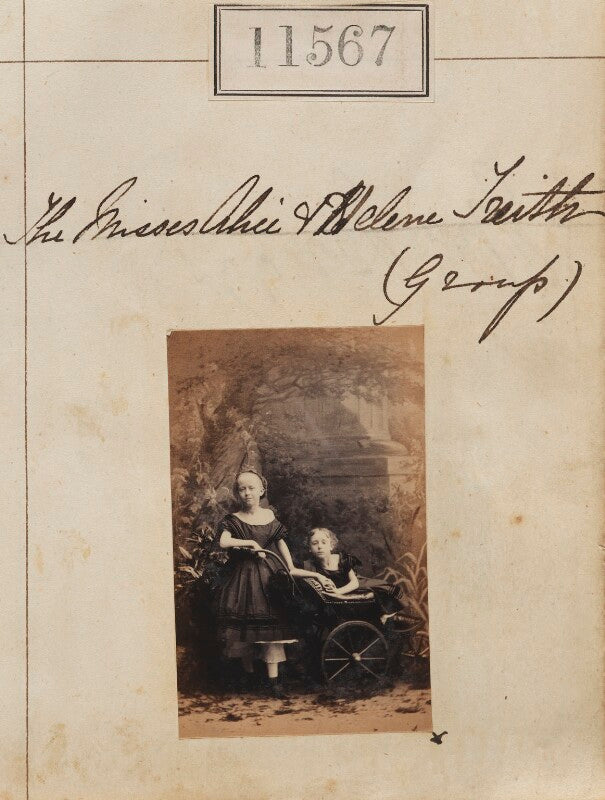 11567
The Misses Alice & Helene Treith
(Group)